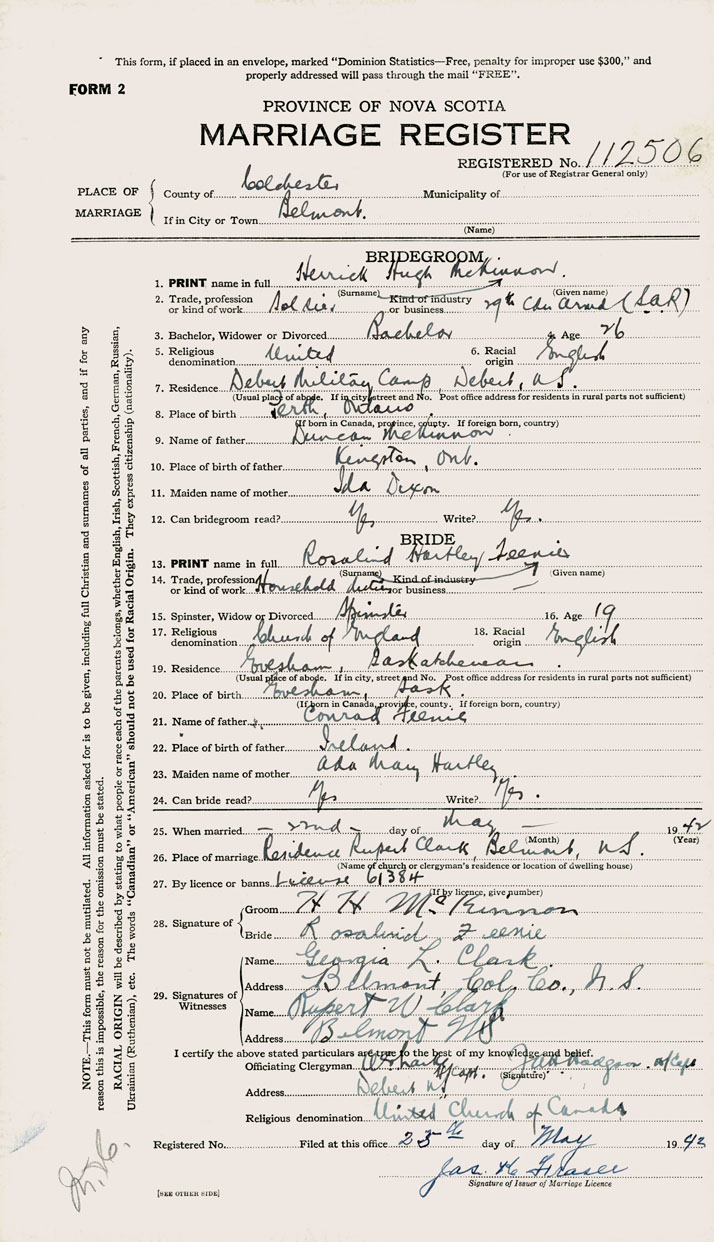 This form, if placed in an envelope, marked "Dominion Statistics—Free, penalty for improper use $300," and
properly addressed will pass through the mail "FREE".
FORM 2
PROVINCE OF NOVA SCOTIA
MARRIAGE REGISTER
REGISTERED No. 112506
(For use of Registrar General only)
PLACE OF MARRIAGE
County of Colchester Municipality of
If in City or Town Belmont.
(Name)
BRIDEGROOM
1. PRINT name in full Herrick Hugh McKinnon.
(Surname) (Given name)
2. Trade, profession or kind of work Soldier Kind of industry or business 29th Cdn Armd (S.A.R)
3. Bachelor, Widower or Divorced Bachelor 4. Age 26
5. Religious denomination United 6. Racial origin English
7. Residence Debert Military Camp, Debert, N.S.
(Usual place of abode. If in city, street and No. Post office address for residents in rural parts not sufficient)
8. Place of birth Perth, Ontario
(If born in Canada, province, county. If foreign born, country)
9. Name of father Duncan McKinnon
10. Place of birth of father Kingston, Ont.
11. Maiden name of mother Ida Dixon
12. Can bridegroom read? Yes Write? Yes.
BRIDE
13. PRINT name in full Rosalind Hartley Feenie
(Surname) (Given name)
14. Trade, profession or kind of work Household duties Kind of industry or business —
15. Spinster, Widow or Divorced Spinster 16. Age 19
17. Religious denomination Church of England 18. Racial origin English
19. Residence Evesham, Saskatchewan.
(Usual place of abode. If in city, street and No. Post office address for residents in rural parts not sufficient)
20. Place of birth Evesham, Sask.
(If born in Canada, province, county. If foreign born, country)
21. Name of father Conrad Feenie
22. Place of birth of father Ireland.
23. Maiden name of mother Ada Mary Hartley
24. Can bride read? Yes Write? Yes.
25. When married — 22nd — day of May — 1942
(Month) (Year)
26. Place of marriage Residence Rupert Clark, Belmont, N.S.
(Name of church or clergyman's residence or location of dwelling house)
27. By licence or banns License 61384
(If by licence, give number)
28. Signature of
Groom H H McKinnon
Bride Rosalind Feenie
29. Signatures of Witnesses
Name Georgia L. Clark
Address Belmont, Col. Co., N.S.
Name Rupert W Clark
Address Belmont NS
I certify the above stated particulars are true to the best of my knowledge and belief.
Officiating Clergyman H/Capt. Hodgson H/Capt
(Signature)
Address Debert NS
Religious denomination United Church of Canada
Registered No. Filed at this office 23th day of May 1942
Jas. H Fraser
Signature of Issuer of Marriage Licence
[SEE OTHER SIDE]
NOTE.—This form must not be mutilated. All information asked for is to be given, including full Christian and surnames of all parties, and if for any
reason this is impossible, the reason for the omission must be stated.
RACIAL ORIGIN will be described by stating to what people or race each of the parents belongs, whether English, Irish, Scottish, French, German, Russian,
Ukrainian (Ruthenian), etc. The words "Canadian" or "American" should not be used for Racial Origin. They express citizenship (nationality).